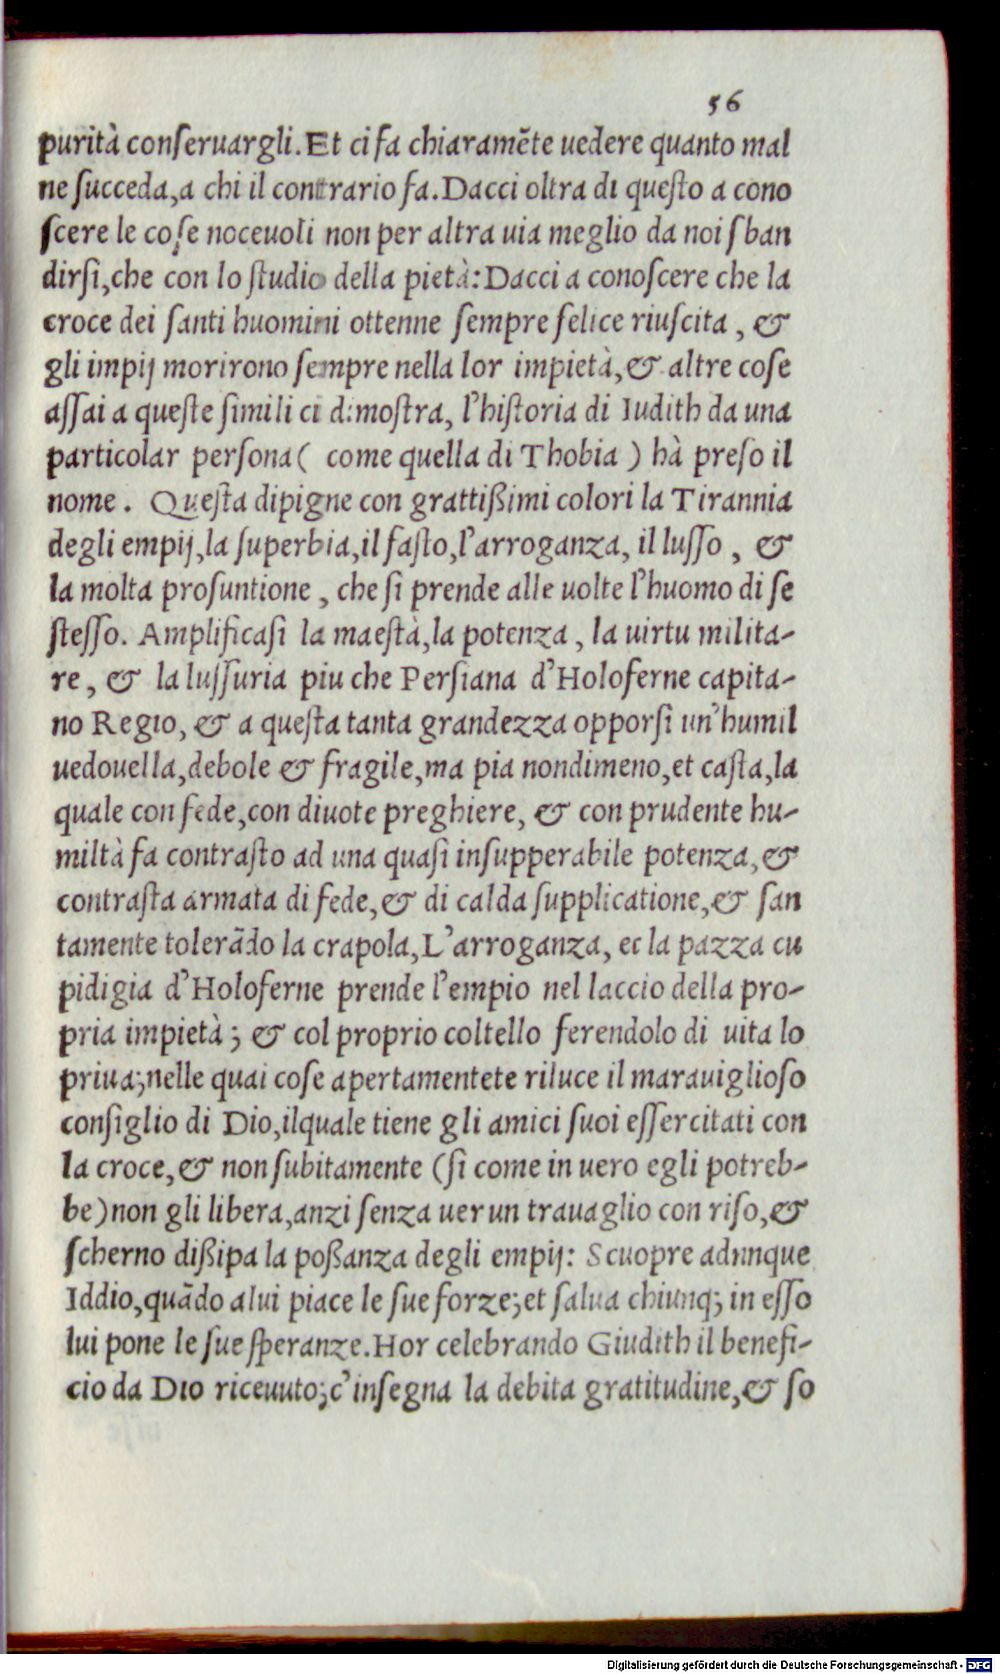 56
purità conſeruargli. Et ci fa chiaramẽte uedere quanto mal
ne ſucceda, a chi il contrario fa. Dacci oltra di queſto a cono
ſcere le coſe noceuoli non per altra uia meglio da noi sban
dirſi, che con lo ſtudio della pietà: Dacci a conoſcere che la
croce dei ſanti huomini ottenne ſempre felice riuſcita, &
gli impij morirono ſempre nella lor impietà, & altre coſe
aſſai a queſte ſimili ci dimoſtra, l'hiſtoria di Iudith da una
particolar perſona ( come quella di Thobia ) hà preſo il
nome. Queſta dipigne con grattißimi colori la Tirannia
degli empij, la ſuperbia, il faſto, l'arroganza, il luſſo, &
la molta proſuntione, che ſi prende alle uolte l'huomo di ſe
ſteſſo. Amplificaſi la maeſtà, la potenza, la uirtu milita-
re, & la luſſuria piu che Perſiana d'Holoferne capita-
no Regio, & a queſta tanta grandezza opporſi un'humil
uedouella, debole & fragile, ma pia nondimeno, et caſta, la
quale con fede, con diuote preghiere, & con prudente hu-
miltà fa contraſto ad una quaſi inſupperabile potenza, &
contraſta armata di fede, & di calda ſupplicatione, & ſan
tamente tolerãdo la crapola, L'arroganza, et la pazza cu
pidigia d'Holoferne prende l'empio nel laccio della pro-
pria impietà; & col proprio coltello ferendolo di uita lo
priua; nelle quai coſe apertamentete riluce il marauiglioſo
conſiglio di Dio, ilquale tiene gli amici ſuoi eſſercitati con
la croce, & non ſubitamente (ſi come in uero egli potreb-
be) non gli libera, anzi ſenza uer un trauaglio con riſo, &
ſcherno dißipa la poßanza degli empij: Scuopre adunque
Iddio, quãdo a lui piace le ſue forze; et ſalua chiunq; in eſſo
lui pone le ſue ſperanze. Hor celebrando Giudith il benefi-
cio da Dio riceuuto; c'inſegna la debita gratitudine, & ſo
Digitalisierung gefördert durch die Deutsche Forschungsgemeinschaft - DFG